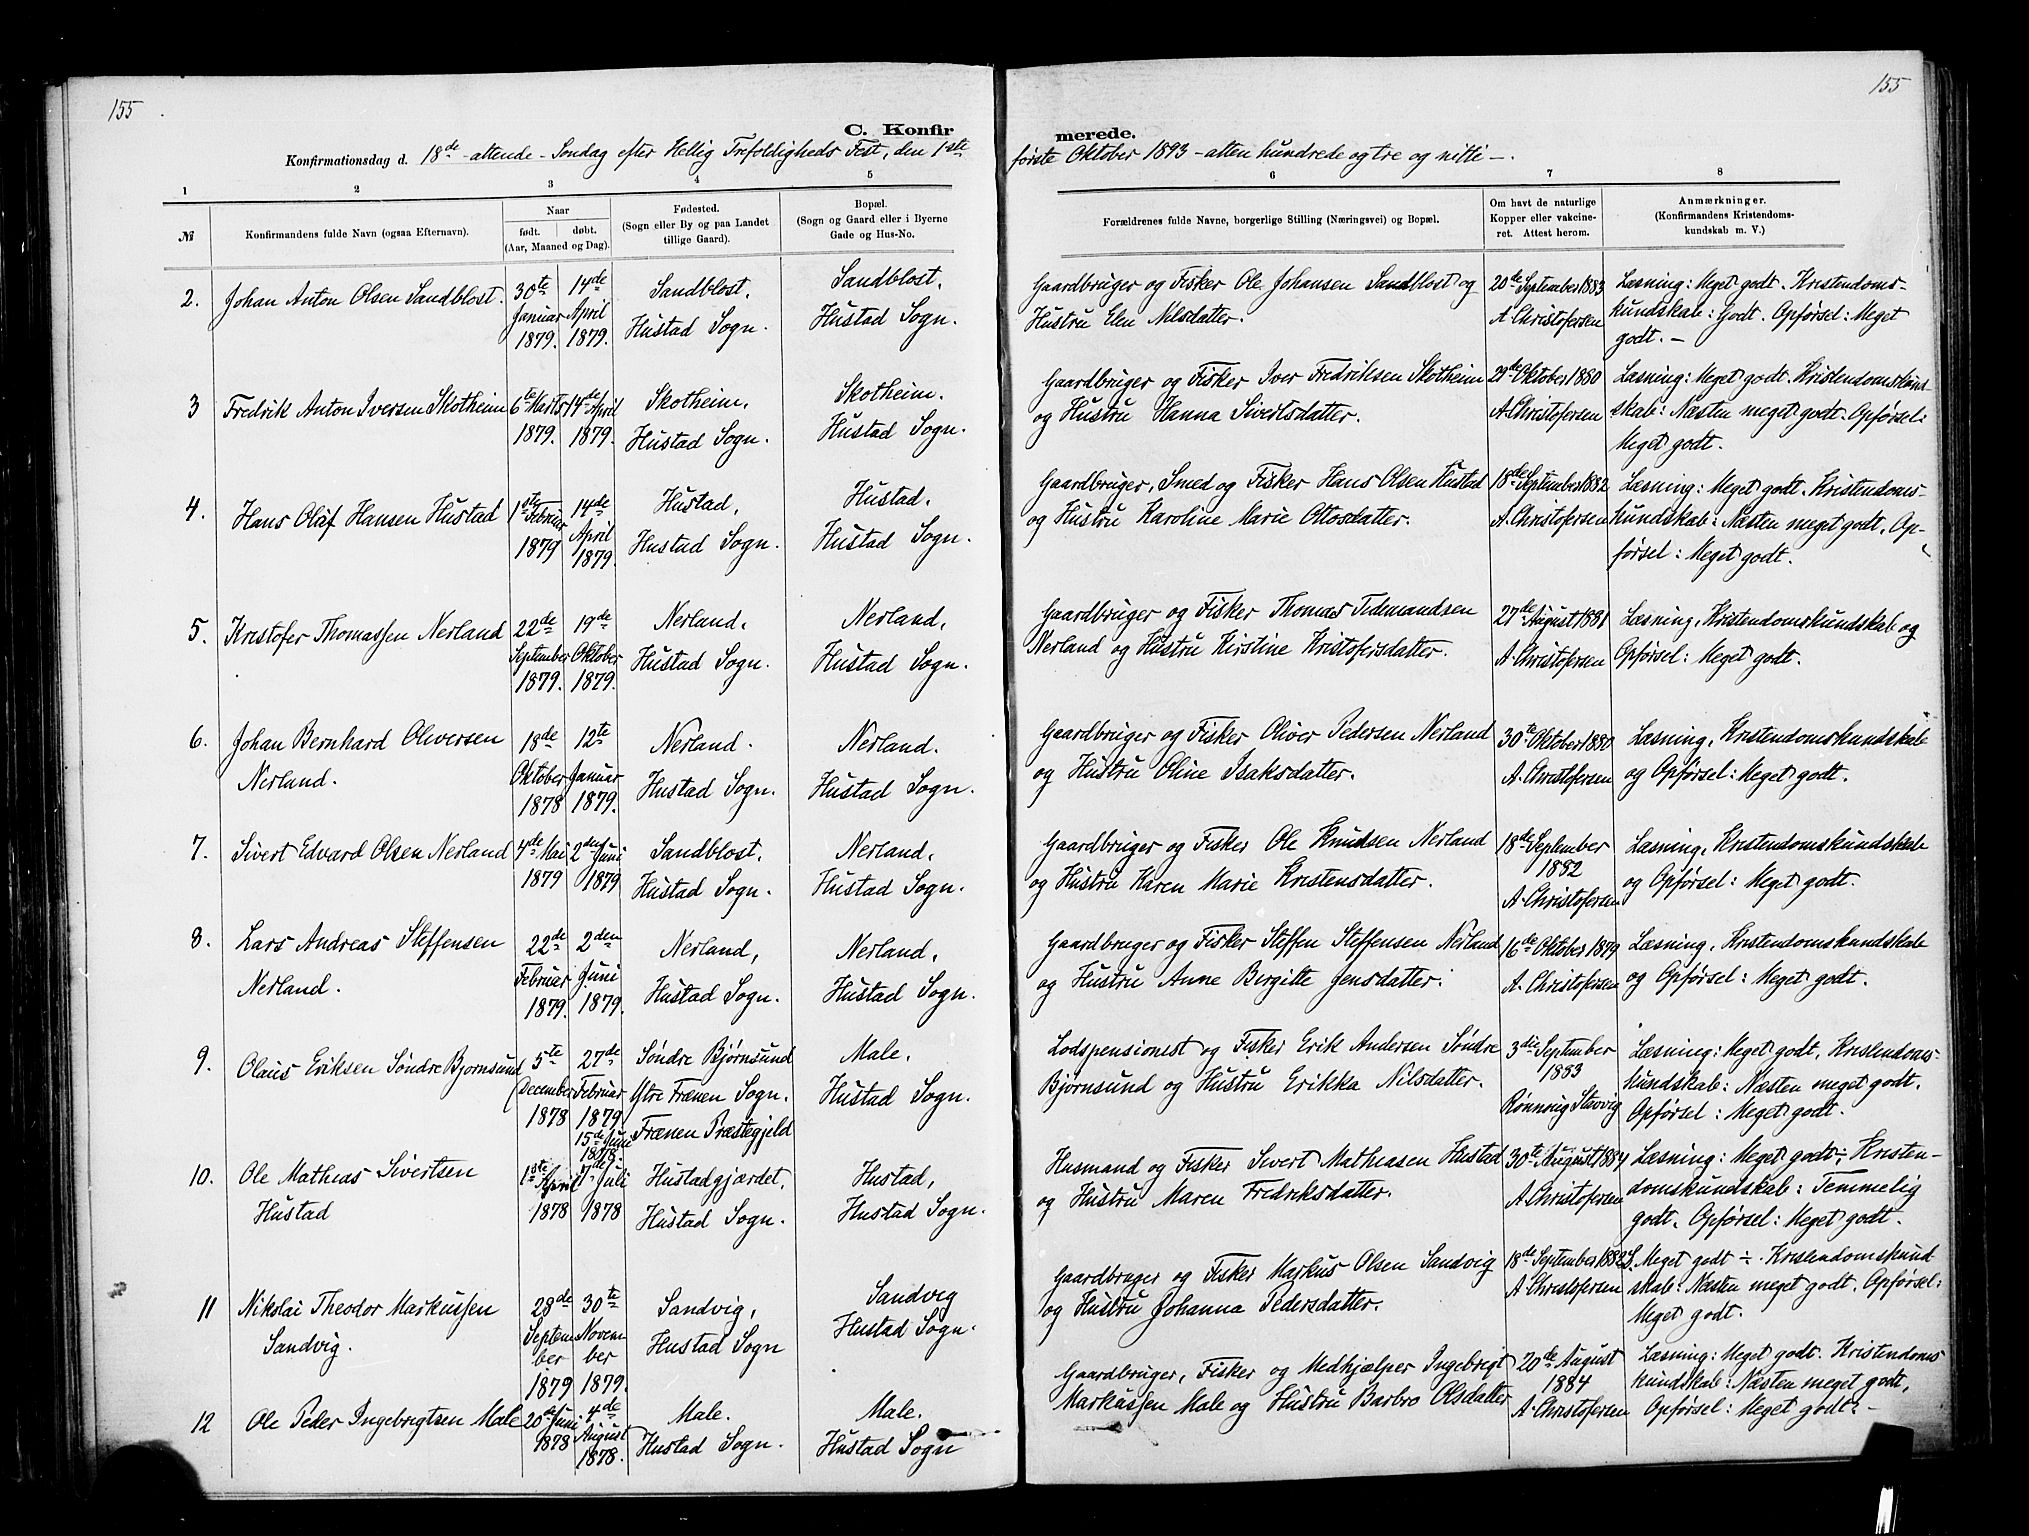 155
155
C. Konfir
merede.
Konfirmationsdag d. 18de - attende - Søndag efter Hellig Trefoldigheds Fest, den 1ste
første Oktober 1893 - atten hundrede og tre og nitti -.
1 2 3 4 5
6 7 8
№
Konfirmandens fulde Navn (ogsaa Efternavn).
Naar
født. døbt.
(Aar, Maaned og Dag).
Fødested.
(Sogn eller By og paa Landet
tillige Gaard).
Bopæl.
(Sogn og Gaard eller i Byerne
Gade og Hus-No.
Forældrenes fulde Navne, borgerlige Stilling (Næringsvei) og Bopæl.
Om havt de naturlige
Kopper eller vakcine-
ret. Attest herom.
Anmærkninger.
(Konfirmandens Kristendoms-
kundskab m. V.)
2. Johan Anton Olsen Sandblost.
30te Januar 1879.
14de April 1879.
Sandblost,
Hustad Sogn.
Sandblost,
Hustad Sogn.
Gaardbruger og Fisker Ole Johansen Sandblost og
Hustru Elen Nilsdatter.
20de September 1883
A. Christofersen
Læsning: Meget godt. Kristendoms-
kundskab: Godt. Opførsel: Meget
godt. -
3 Fredrik Anton Iversen Skotheim
6te Marts 1879.
14de April 1879.
Skotheim,
Hustad Sogn.
Skotheim.
Hustad Sogn.
Gaardbruger og Fisker Iver Fredriksen Skotheim
og Hustru Hanna Sivertsdatter.
29de Oktober 1880
A. Christofersen
Læsning: Meget godt. Kristendomskund-
skab: Næsten meget godt. Opførsel:
Meget godt.
4. Hans Olaf Hansen Hustad
1ste Februar 1879
14de April 1879
Hustad,
Hustad Sogn.
Hustad,
Hustad Sogn.
Gaardbruger, Smed og Fisker Hans Olsen Hustad
og Hustru Karoline Marie Ottosdatter.
18de September 1882
A. Christofersen
Læsning: Meget godt. Kristendoms-
kundskab: Næsten meget godt. Op-
førsel: Meget godt.
5. Kristofer Thomassen Nerland
22de September 1879.
19de Oktober 1879.
Nerland,
Hustad Sogn.
Nerland,
Hustad Sogn.
Gaardbruger og Fisker Thomas Tedemandsen
Nerland og Hustru Kirstine Kristofersdatter.
27de August 1881
A. Christofersen
Læsning, Kristendomskundskab og
Opførsel: Meget godt.
6. Johan Bernhard Oliversen
Nerland.
18de Oktober 1878
12te Januar 1879.
Nerland.
Hustad Sogn.
Nerland.
Hustad Sogn.
Gaardbruger og Fisker Oliver Pedersen Nerland
og Hustru Oline Isaksdatter.
30te Oktober 1880
A. Christofersen
Læsning, Kristendomskundskab
og Opførsel: Meget godt.
7. Sivert Edvard Olsen Nerland
4de Mai 1879
2den Juni 1879
Sandblost,
Hustad Sogn.
Nerland,
Hustad Sogn.
Gaardbruger og Fisker Ole Knudsen Nerland
og Hustru Karen Marie Kristensdatter.
18de September
1882
A. Christofersen
Læsning, Kristendomskundskab
og Opførsel: Meget godt.
8. Lars Andreas Steffensen
Nerland.
22de Februar 1879.
2den Juni 1879.
Nerland,
Hustad Sogn.
Nerland,
Hustad Sogn.
Gaardbruger og Fisker Steffen Steffensen Nerland
og Hustru Anne Bergitte Jensdatter.
16de Oktober 1879
A. Christofersen
Læsning, Kristendomskundskab
og Opførsel: Meget godt.
9. Olaus Eriksen Søndre Bjørnsund
5te December 1878
27de Februar 1879
Søndre Bjørnsund
Ytre Frænen Sogn.
Frænen Præstegjeld
Male,
Hustad Sogn.
Lodspensionist og Fisker Erik Andersen Søndre
Bjørnsund og Hustru Erikka Nilsdatter.
3die September
1883
Rønnaug Stavig
Læsning: Meget godt, Kristendoms-
kundskab: Næsten meget godt.
Opførsel: Meget godt.
10. Ole Mathias Sivertsen
Hustad
1ste April 1878
15de Juni 1878.
7de Juli 1878
Hustadgjærdet,
Hustad Sogn.
Hustad,
Hustad Sogn.
Husmand og Fisker Sivert Mathiasen Hustad
og Hustru Maren Fredriksdatter.
30te August 1884
A. Christofersen
Læsning: Meget godt ÷, Kristen-
domskundskab: Temmelig
godt, Opførsel: Meget godt.
11 Nikolai Theodor Markussen
Sandvig.
28de September 1879
30te November 1879.
Sandvig,
Hustad Sogn
Sandvig
Hustad Sogn.
Gaardbruger og Fisker Markus Olsen Sandvig
og Hustru Johanna Pedersdatter.
18de September 1882
A. Christofersen
L. Meget godt ÷. Kristendomskund
skab: Næsten meget godt. Opførsel:
Meget godt.
12 Ole Peder Ingebrigtsen Male
20de Juni 1878
4de August 1878.
Male.
Hustad Sogn.
Male.
Hustad Sogn
Gaardbruger, Fisker og Medhjælper Ingebrigt
Markussen Male og Hustru Barbro Olsdatter
20de August
1884
A. Christofersen
Læsning: Meget godt. Kristendoms
kundskab: Næsten meget godt,
Opførsel: Meget godt. -